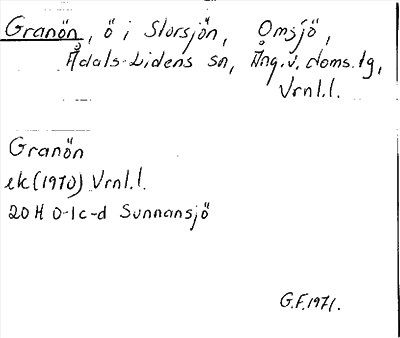 Granön, ö i Storsjön, Omsjö,
Ådals-Lidens sn, Ång.v. doms.lg,
Vrnl.l.
Granön
ek (1970) Vrnl.l.
20H 0-1c-d Sunnansjö
G.F. 1971.